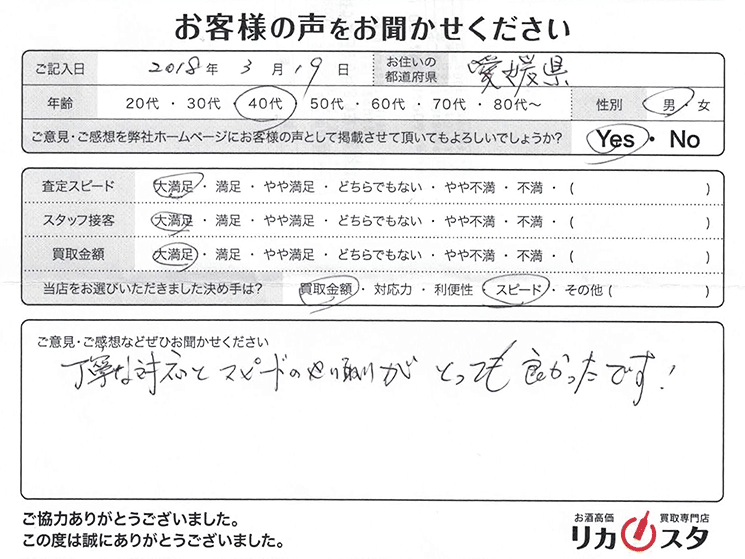 お客様の声をお聞かせください
ご記入日 2018 年 3 月 19 日 お住いの都道府県 愛媛県
年齢 20代 ・ 30代 ・ 40代 ・ 50代 ・ 60代 ・ 70代 ・ 80代〜 性別 男 ・ 女
ご意見・ご感想を弊社ホームページにお客様の声として掲載させて頂いてもよろしいでしょうか? Yes ・ No
査定スピード 大満足 ・ 満足 ・ やや満足 ・ どちらでもない ・ やや不満 ・ 不満 ・ ( )
スタッフ接客 大満足 ・ 満足 ・ やや満足 ・ どちらでもない ・ やや不満 ・ 不満 ・ ( )
買取金額 大満足 ・ 満足 ・ やや満足 ・ どちらでもない ・ やや不満 ・ 不満 ・ ( )
当店をお選びいただきました決め手は? 買取金額 ・ 対応力 ・ 利便性 ・ スピード ・ その他 ( )
ご意見・ご感想などぜひお聞かせください
丁寧な対応と スピードのやり取りが とっても 良かったです!
ご協力ありがとうございました。
この度は誠にありがとうございました。
お酒高価 買取専門店
リカスタ